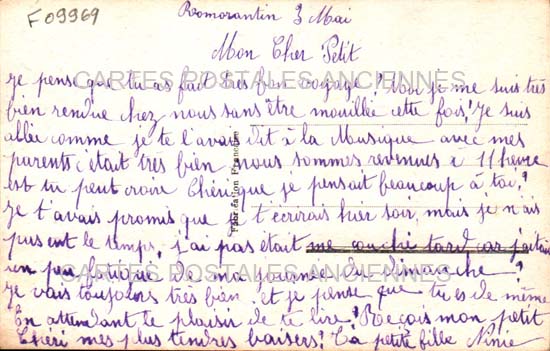 F09969
Romorantin 3 Mai
Mon Cher Petit
Je pense que tu as fait tres bon voyage! Moi je me suis très
bien rendue chez nous sans être mouillée cette fois! Je suis
allée comme je te l'avais dit à la Musique avec mes
parents c'était tres bien nous sommes revenues à 11 heure
est tu peut croire Chéri que je pensait beaucoup à toi!
Je t'avais promis que je t'écrirais hier soir, mais je n'ais
pas eut le temps, j'ai pas était me couché tard car j'étais
un peu fatiguée de ma journée du Dimanche!
Je vais toujours très bien, et je pense que tu es de même
En attendant le plaisir de te lire! Reçois mon petit
Chéri mes plus tendres baisers! Ta petite fille Ninie
CARTES POSTALES ANCIENNES
CARTES POSTALES ANCIENNES
Fabrication Française